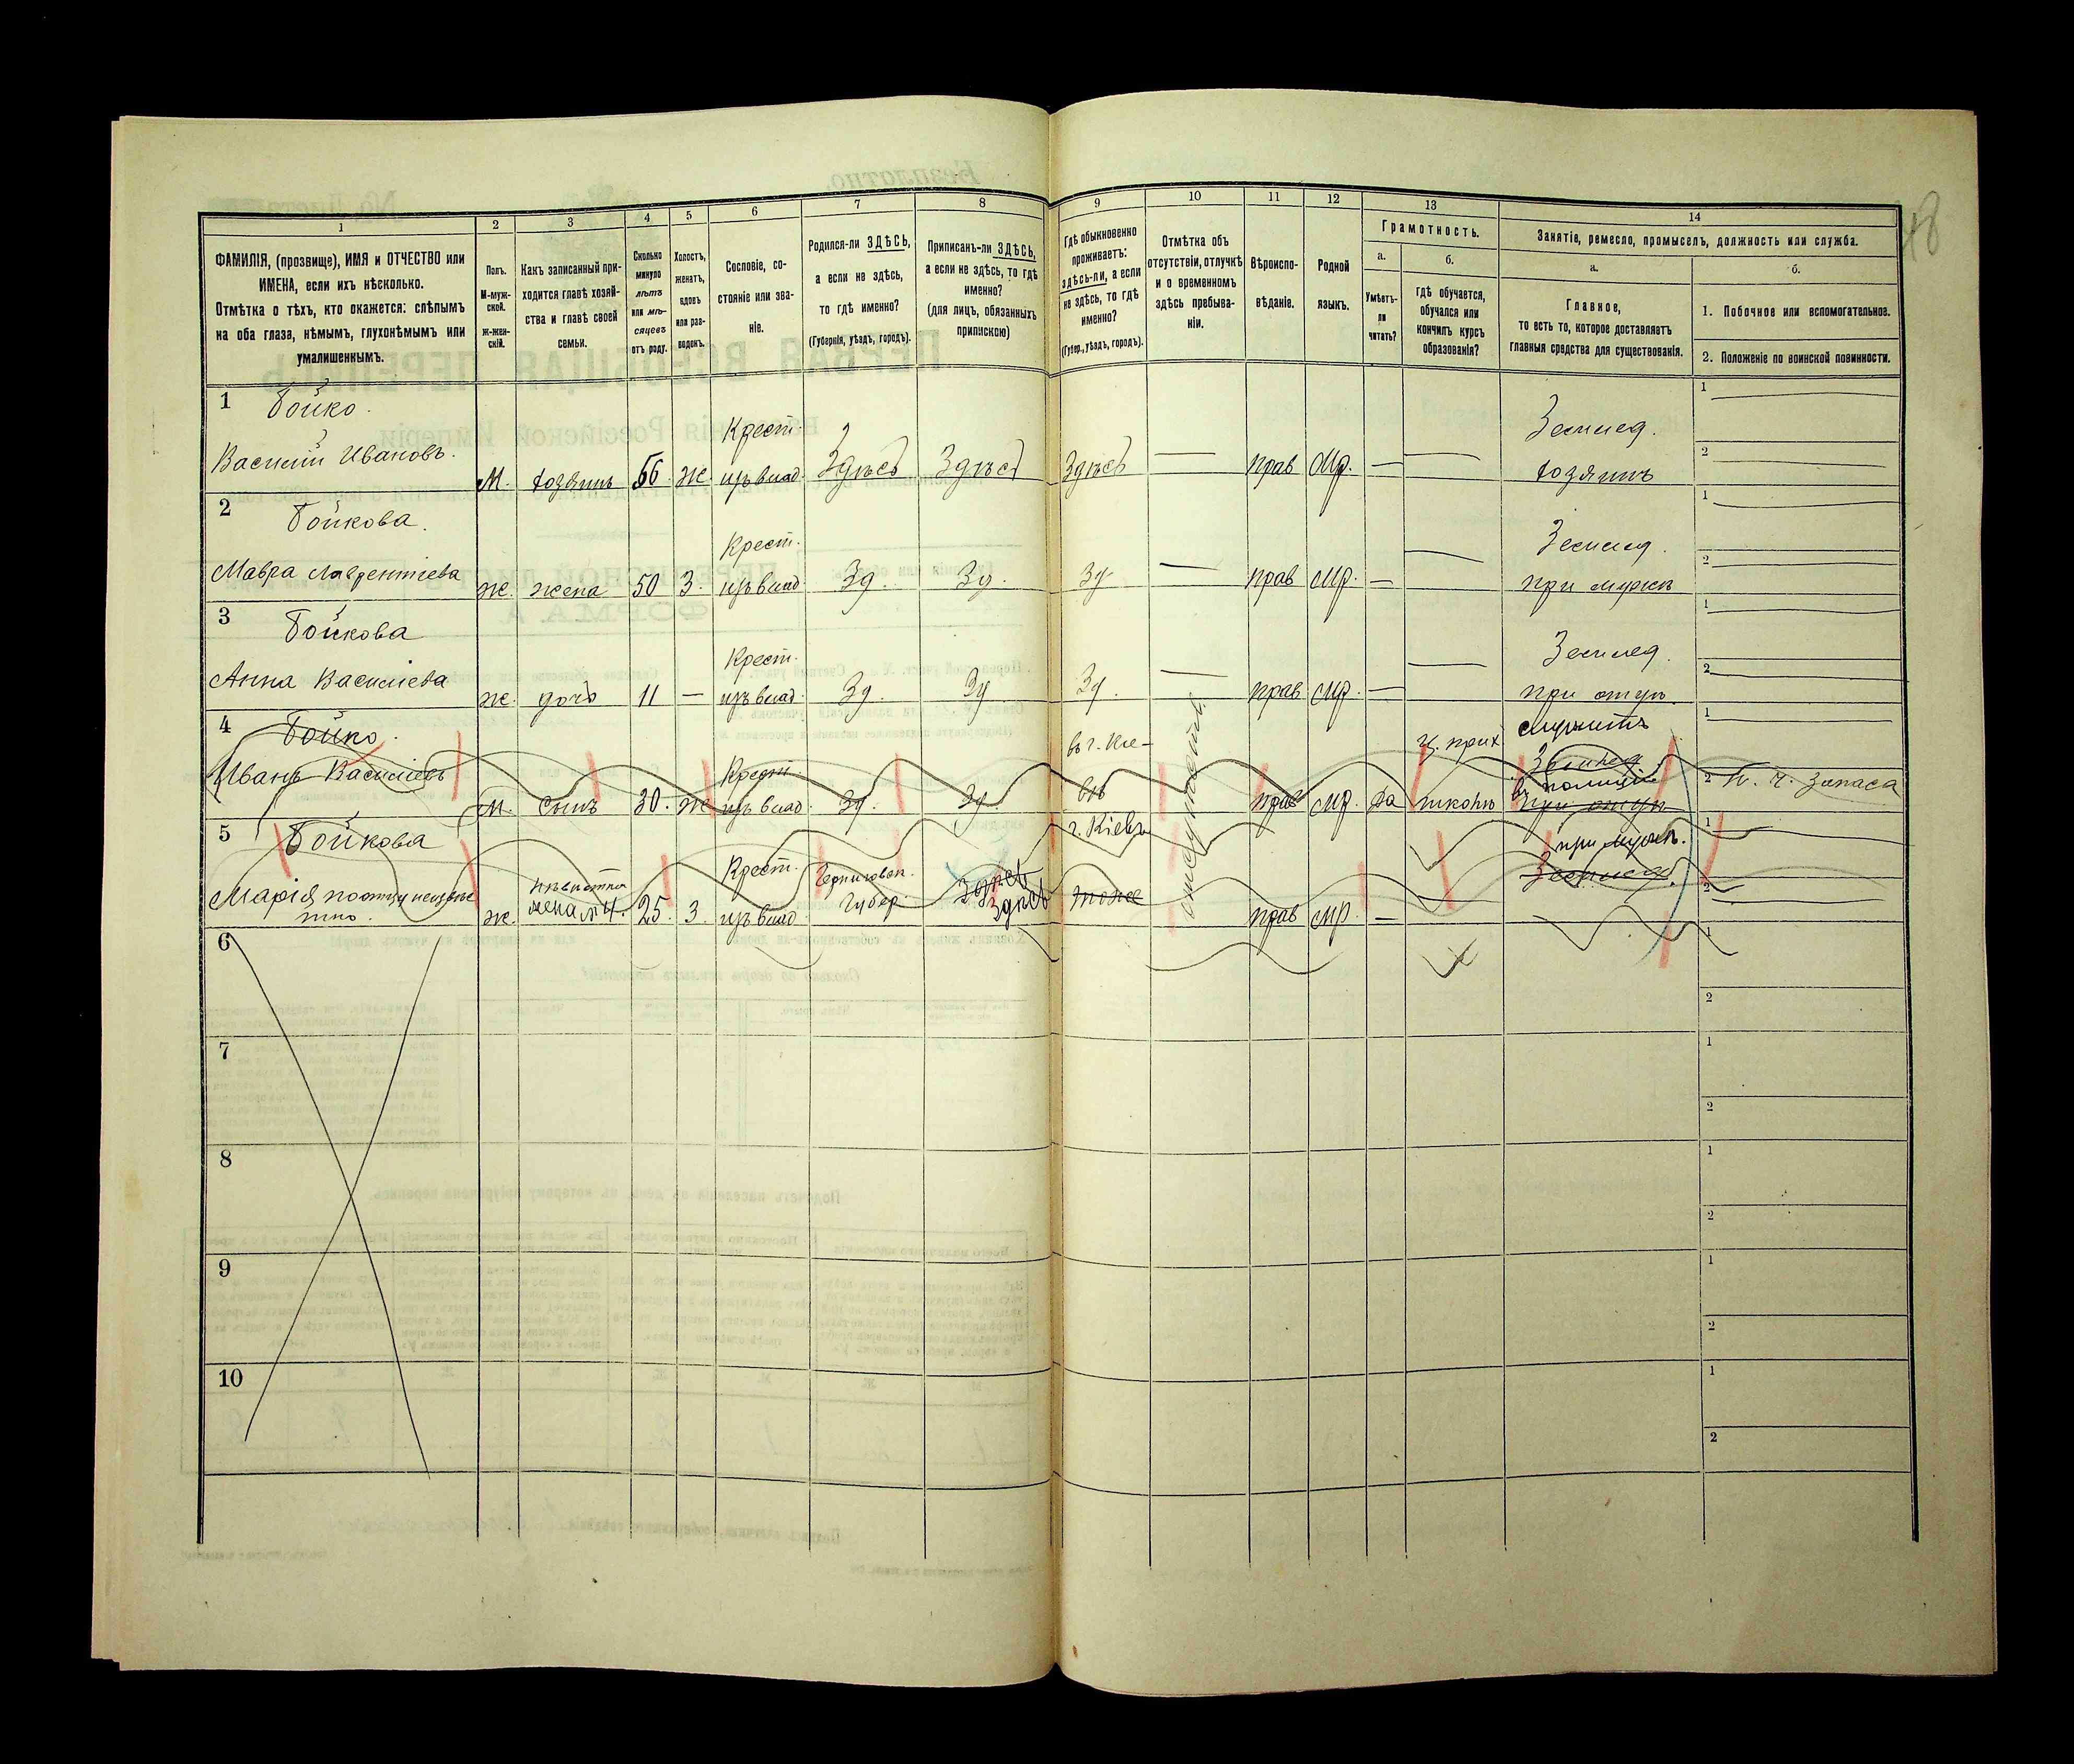 48
1 2 3 4 5 6 7 8 9 10 11 12 13 14
ФАМИЛІЯ, (прозвище), ИМЯ и ОТЧЕСТВО или
ИМЕНА, если ихъ нѣсколько.
Отмѣтка о тѣхъ, кто окажется: слѣпымъ
на оба глаза, нѣмымъ, глухонѣмымъ или
умалишеннымъ.
Полъ.
М-муж-
ской.
Ж-жен-
скій.
Какъ записанный при-
ходится главѣ хозяй-
ства и главѣ своей
семьи.
Сколько
минуло
лѣтъ
или мѣ-
сяцевъ
отъ роду.
Холостъ,
женатъ,
вдовъ
или раз-
веденъ.
Сословіе, со-
стояніе или зва-
ніе.
Родился-ли ЗДѢСЬ,
а если не здѣсь,
то гдѣ именно?
(Губернія, уѣздъ, городъ).
Приписанъ-ли ЗДѢСЬ,
а если не здѣсь, то гдѣ
именно?
(для лицъ, обязанныхъ
припискою)
Гдѣ обыкновенно
проживаетъ:
здѣсь-ли, а если
не здѣсь, то гдѣ
именно?
(Губер., уѣздъ, городъ).
Отмѣтка объ
отсутствіи, отлучкѣ
и о временномъ
здѣсь пребыва-
ніи.
Вѣроиспо-
вѣданіе.
Родной
языкъ.
Грамотность.
а.
Умѣетъ-
ли
читать?
б.
гдѣ обучается,
обучался или
кончилъ курсъ
образованія?
Занятіе, ремесло, промыселъ, должность или служба.
а.
Главное,
то есть то, которое доставляетъ
главныя средства для существованія.
б.
1. Побочное или вспомогательное.
2. Положеніе по воинской повинности.
1 Бойко.
Василій Ивановъ. М. хозяинъ Ж. Крест. изъ влад. Здѣсь Здѣсь Здѣсь — прав Мр. — — Землед. хозяинъ
1
2
2 Бойкова.
Мавра Лаврентіева ж. жена 50 З. Крест. изъ влад Зд. Зд. Зд — прав Мр. — — Землед. при мужѣ
1
2
3 Бойкова
Анна Василіева ж. дочь 11 — Крест. изъ влад. Зд. Зд Зд. — прав Мр. — — Землед. при отцѣ
1
2
4 Бойко.
Иванъ Василіевъ М. сынъ 30. Ж Крест. изъ влад. Зд. Зд. въ г. Кіе-
вѣ
отсутств.
прав Мр. да ц. прих школѣ
служитъ
Землед
въ полиціи
при отцѣ
1
2 запаса
5 Бойкова
Марія
ж. невѣстка
жена №4. 25. З. Крест. изъ влад. Черниговск.
Губер. Здѣсь
Здѣсь
г. Кіевъ
тоже
прав Мр. —
при мужѣ.
Землед.
1
2
6
1
2
7
1
2
8
1
2
9
1
2
10
1
2